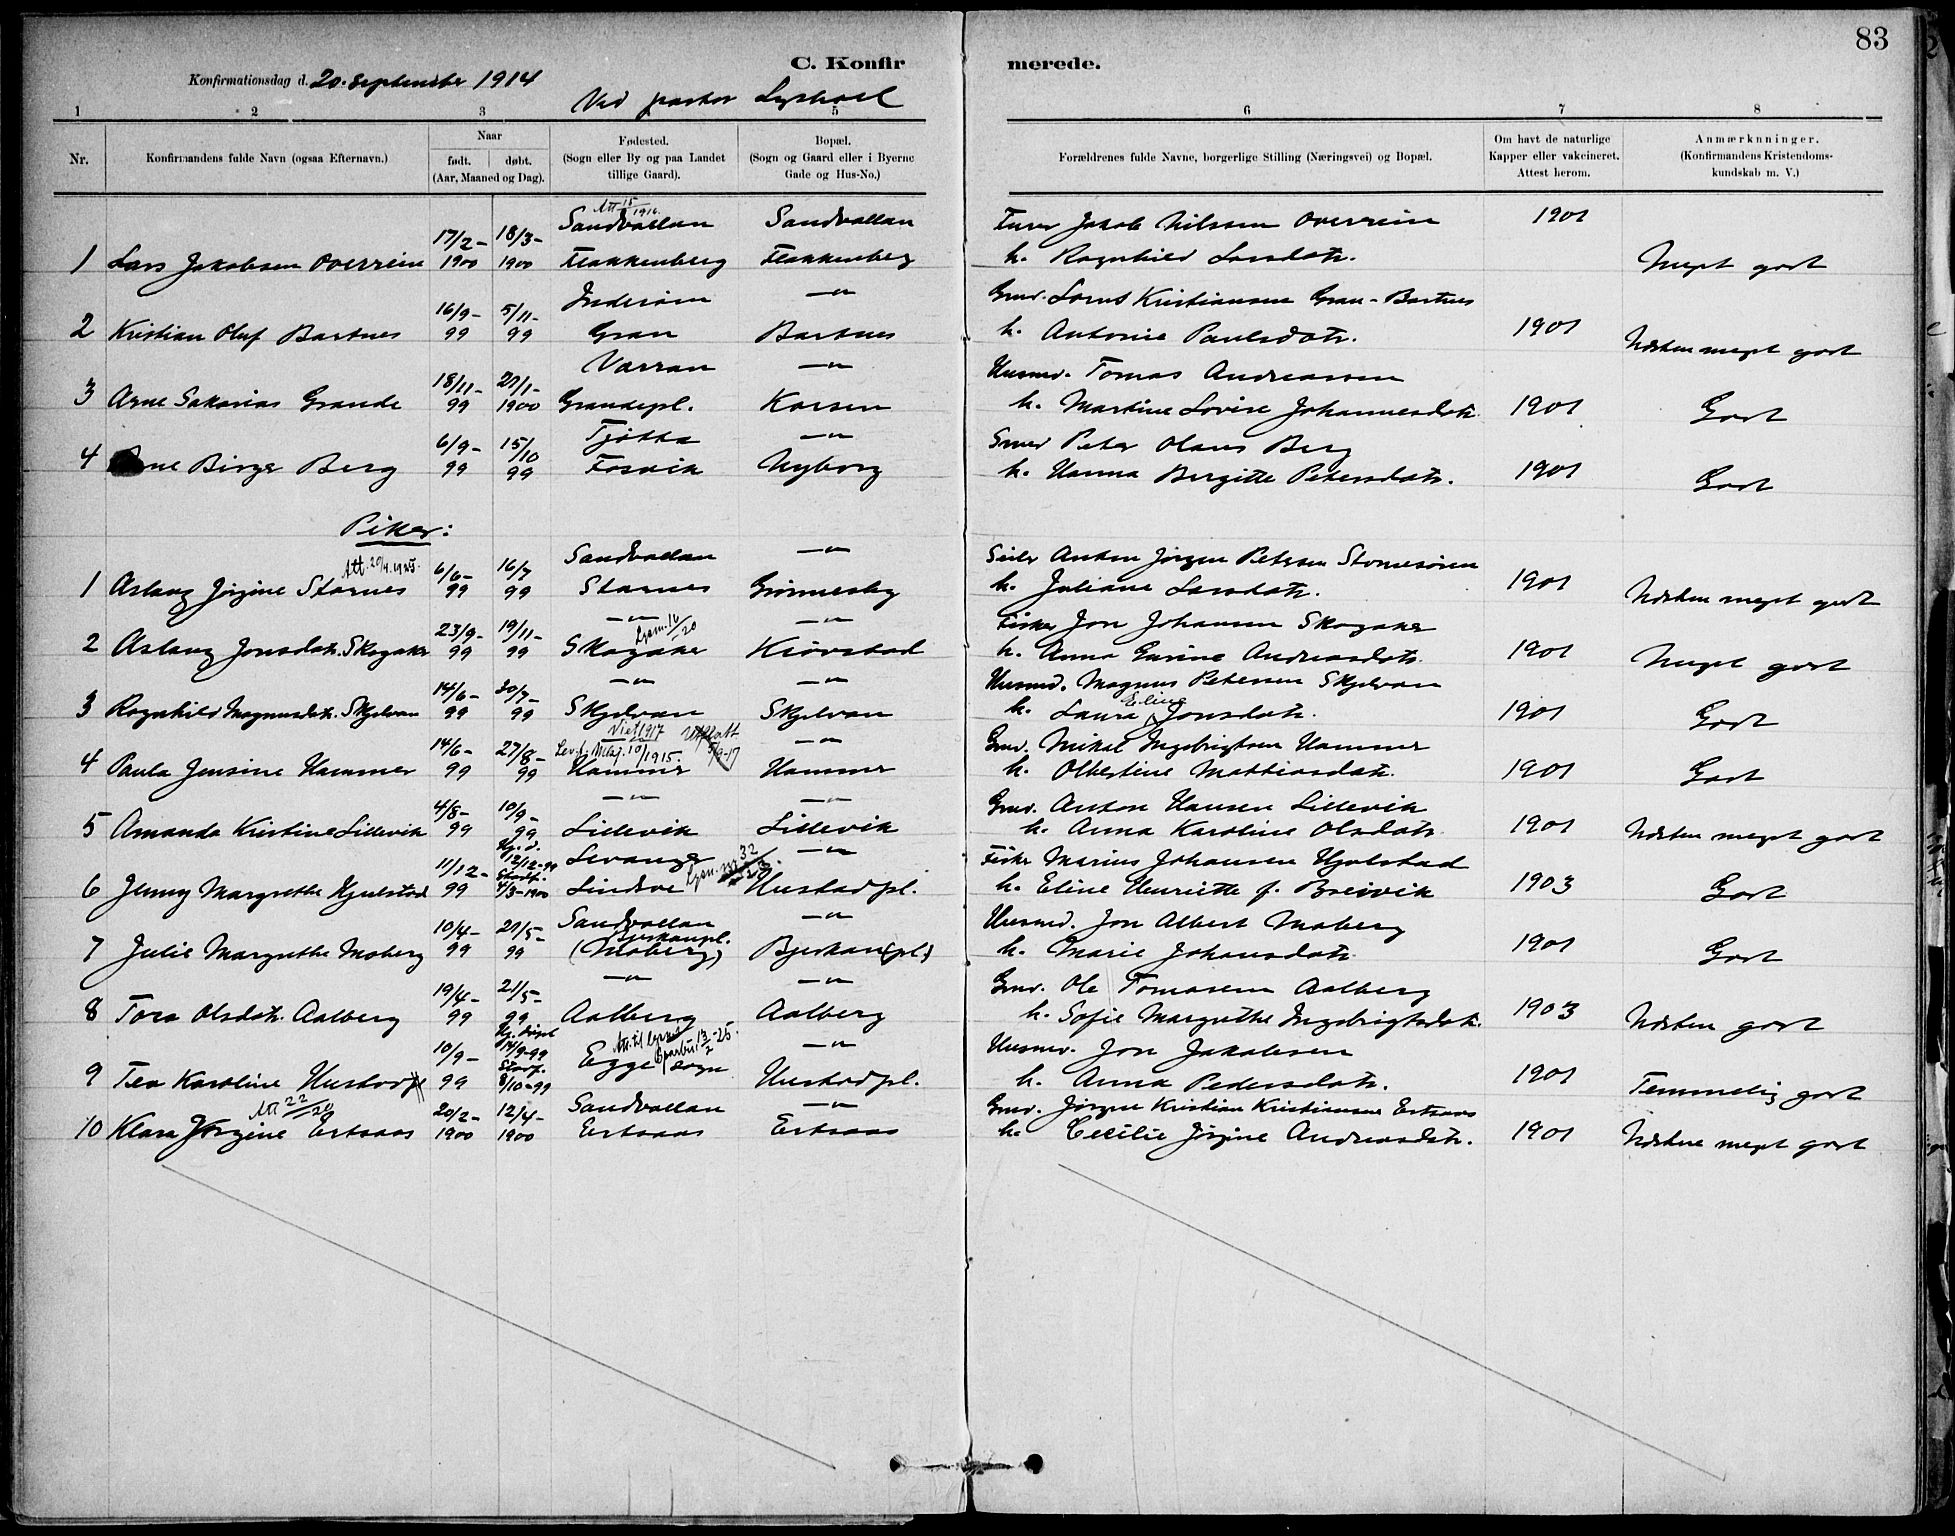 83
C. Konfirmerede.
Konfirmationsdag d. 20. september 1914
Ved pastor
1 2 3 5 6 7 8
Nr.
Konfirmandens fulde Navn (ogsaa Efternavn.)
Naar
født. døbt.
(Aar, Maaned og Dag).
Fødested.
(Sogn eller By og paa Landet
tillige Gaard).
Bopæl.
(Sogn og Gaard eller i Byerne
Gade og Hus-No.)
Forældrenes fulde Navne, borgerlige Stilling (Næringsvei) og Bopæl.
Om havt de naturlige
Kapper eller vakcineret.
Attest herom.
Anmærkninger.
(Konfirmandens Kristendoms-
kundskab m. V.)
Att 15/1916
17/2- 18/3- Sandvollan Sandvollan Jakob Nilssen Overrein 1901
1 Lars Jakobsen Overrein 1900 1900 Flakkenberg Flakkenberg h. Ragnhild Larsdatr. Meget godt
16/9- 5/11- Inderøen -"- Gmd. Lornts Kristiansen Gran-Bartnes
2 Kristian Oluf Bartnes 99 99 Gran Bartnes h. Antonie Paulsdatr. 1901 Næsten meget godt
18/11- 21/1- Værran -"- Husmd. Tomas Andreassen
3 Arne Sakarias Grande 99 1900 Grandepl. Korsen h. Martine Lovise Johannesdatr. 1901 Godt
6/9- 15/10 Tjøtta -"- Smed Peter Olaus Berg
4 Arne Birger Berg 99 99 Forvik Nyborg h. Hanna Bergitte Petersdatr. 1901 Godt
Piker:
Att. 20/4.1925.
6/6- 16/7 Sandvollan -"- Anton Jørgen Petersen Stornesøren
1 Aslaug Jørgine Stornes 99 99 Stornes Grønnesby h. Juliane Larsdatr. 1901 Næsten meget godt
23/9- 19/11- -"- Lysn. 16/-20 -"- Fisker Jon Johansen Skogaker
2 Aslaug Jonsdatr. Skogaker 99 99 Skogaker Kjørstad h. Anna Gurine Andreasdatr. 1901 Meget godt
14/6- 30/7- -"- -"- Husmd. Magnus Petersen Skjelvan
3 Ragnhild Magnusdatr. Skjelvan 99 99 Skjelvan Skjelvan h. Laura Eline Jonsdatr. 1901 Godt
Viet 1917 Utflatt 5/9-17
14/6- 27/8- 10/1915. -"- Gmd. Mikal Ingebrigtsen Hammer
4 Paula Jensine Hammer 99 99 Hammer Hammer h. Olbertine Mattiasdatr. 1901 Godt
4/8- 10/9- -"- -"- Gmd. Anton Hansen Lillevik
5 Amanda Kristine Lillevik 99 99 Lillevik Lillevik h. Anna Karoline Olsdatr. 1901 Næsten meget godt
11/12- Hj. d. 12/12-99 Levanger Lysn. nr. 32 -"- Fisker Marius Johansen Hjulstad
6 Jenny Margrethe Hjulstad 99 Stadf. 4/3-1900 Lindsve Hustadpl. h. Eline Henriette f. Breivik 1903 Godt
10/4- 21/5- Sandvollan -"- Husmd. Jon Albert Moberg
7 Julie Margrethe Moberg 99 99 Bjerkanpl. (Moberg) Bjerkan(pl) h. Marie Johansdatr. 1901 Godt
19/4- 21/5- -"- -"- Gmd. Ole Tomasen Aalberg
8 Tora Olsdatr. Aalberg 99 99 Aalberg Aalberg h. Sofie Margrethe Ingebrigtsdatr. 1903 Næsten godt
10/9- Hj. døpt 14/9-99 Att. til lysn. 13/2-25. -"- Husmd. Jon Jakobsen
9 Tea Karoline Hustad 99 Stadf. 8/10-99 Egge sogn Hustadpl. h. Anna Pedersdatr. 1901 Temmelig godt
Att 22/-20
20/2- 12/4- Sandvollan -"- Gmd. Jørgen Kristian Kristiansen Ertsaas
10 Klara Jørgine Ertsaas 1900 1900 Ertsaas Ertsaas h. Cecilie Jørgine Andreasdatr. 1901 Næsten meget godt